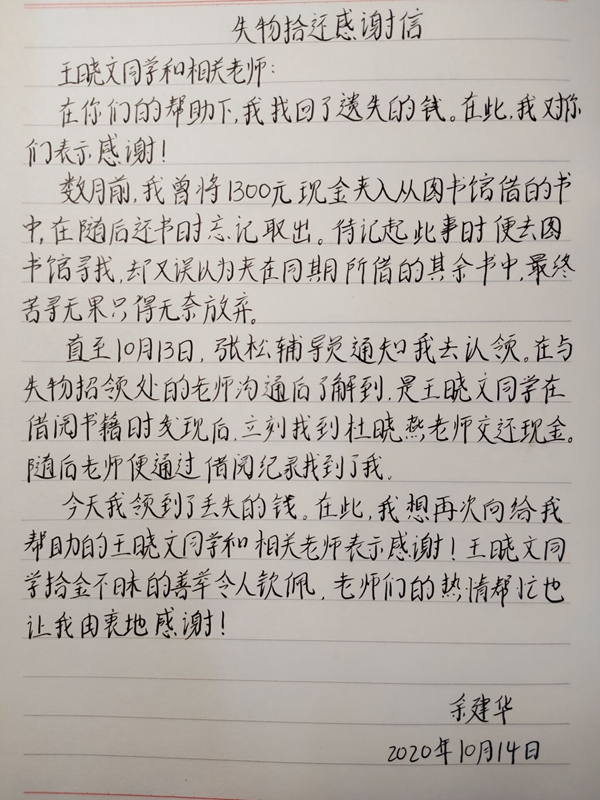 失物拾还感谢信
王晓文同学和相关老师：
在你们的帮助下，我找回了遗失的钱。在此，我对你
们表示感谢！
数月前，我曾将1300元现金夹入从图书馆借的书
中，在随后还书时忘记取出。待记起此事时便去图
书馆寻找，却又误认为夹在同期所借的其余书中，最终
苦寻无果只得无奈放弃。
直至10月13日，张松辅导员通知我去认领。在与
失物招领处的老师沟通后了解到，是王晓文同学在
借阅书籍时发现后，立刻找到杜晓燕老师交还现金。
随后老师便通过借阅纪录找到了我。
今天我领到了丢失的钱。在此，我想再次向给我
帮助的王晓文同学和相关老师表示感谢！王晓文同
学拾金不昧的善举令人钦佩，老师们的热情帮忙也
让我由衷地感谢！
余建华
2020年10月14日